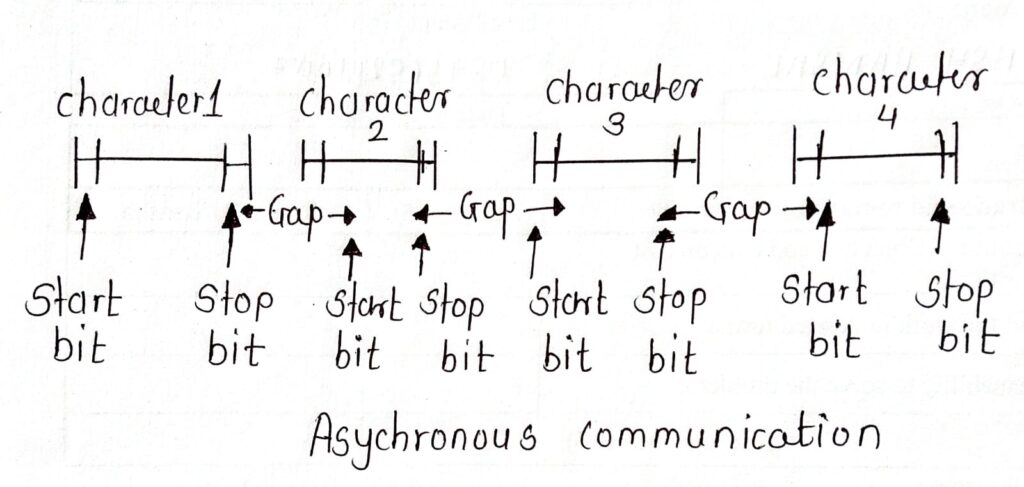 character1 Character 2 Character 3 Character 4
Gap Gap Gap
Start bit Stop bit Start bit Stop bit Start bit Stop bit Start bit Stop bit
Asychronous communication